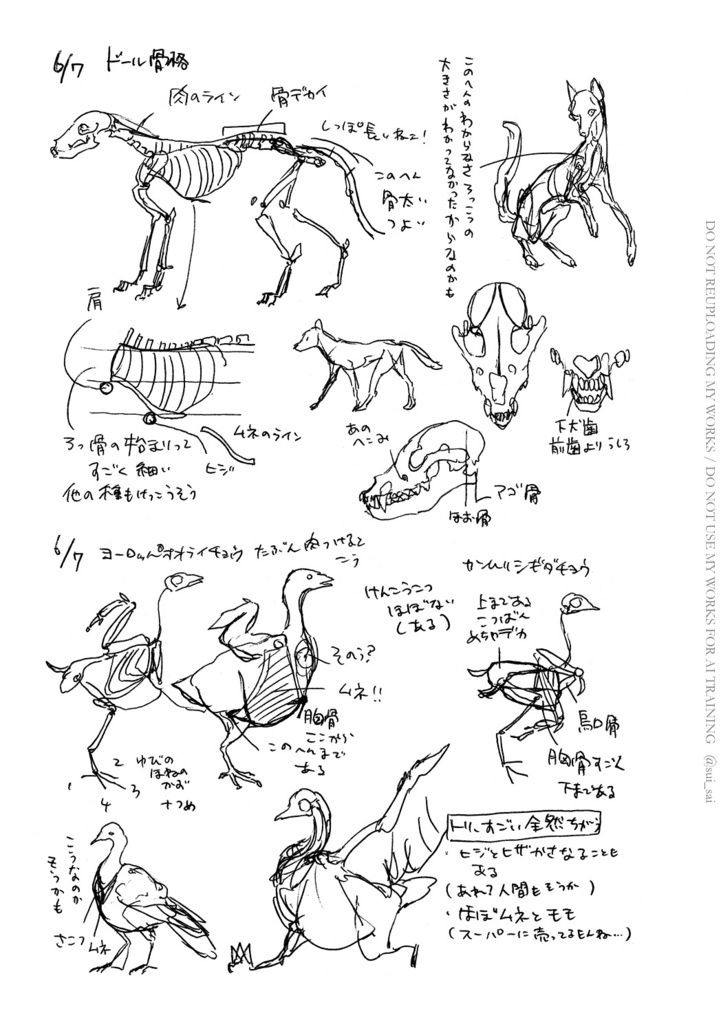 6/7 ドール骨格
肉のライン
骨デカイ
しっぽ長いねー!
このへん
骨太い
つよい
このへんのわからなさ ろっこつの
大きさがわかってなかったからなのかも
肩
ムネのライン
ヒジ
ろっ骨の始まりって
すごく細い
他の種もけっこうそう
あの
へこみ
下犬歯
前歯よりうしろ
アゴ骨
ほお骨
6/7 ヨーロッパオオライチョウ たぶん肉つけると
こう
けんこうこつ
ほぼない
(ある)
カンムリシギダチョウ
上まである
こつばん
めちゃデカ
そのう?
ムネ!!
胸骨
ここから
このへんまで
ある
烏口骨
胸骨すごく
下まである
1
2
3
4
ゆびの
ほねの
かず
ナゾめ
こうなのか
もうかも
さこつ
ムネ
トリ、すごい全然ちがう
・ヒジとヒザかさなることも
ある
(あれ?人間もそうか)
・ほぼムネとモモ
(スーパーに売ってるもんね…)
DO NOT REUPLOADING MY WORKS / DO NOT USE MY WORKS FOR AI TRAINING @sui_sai